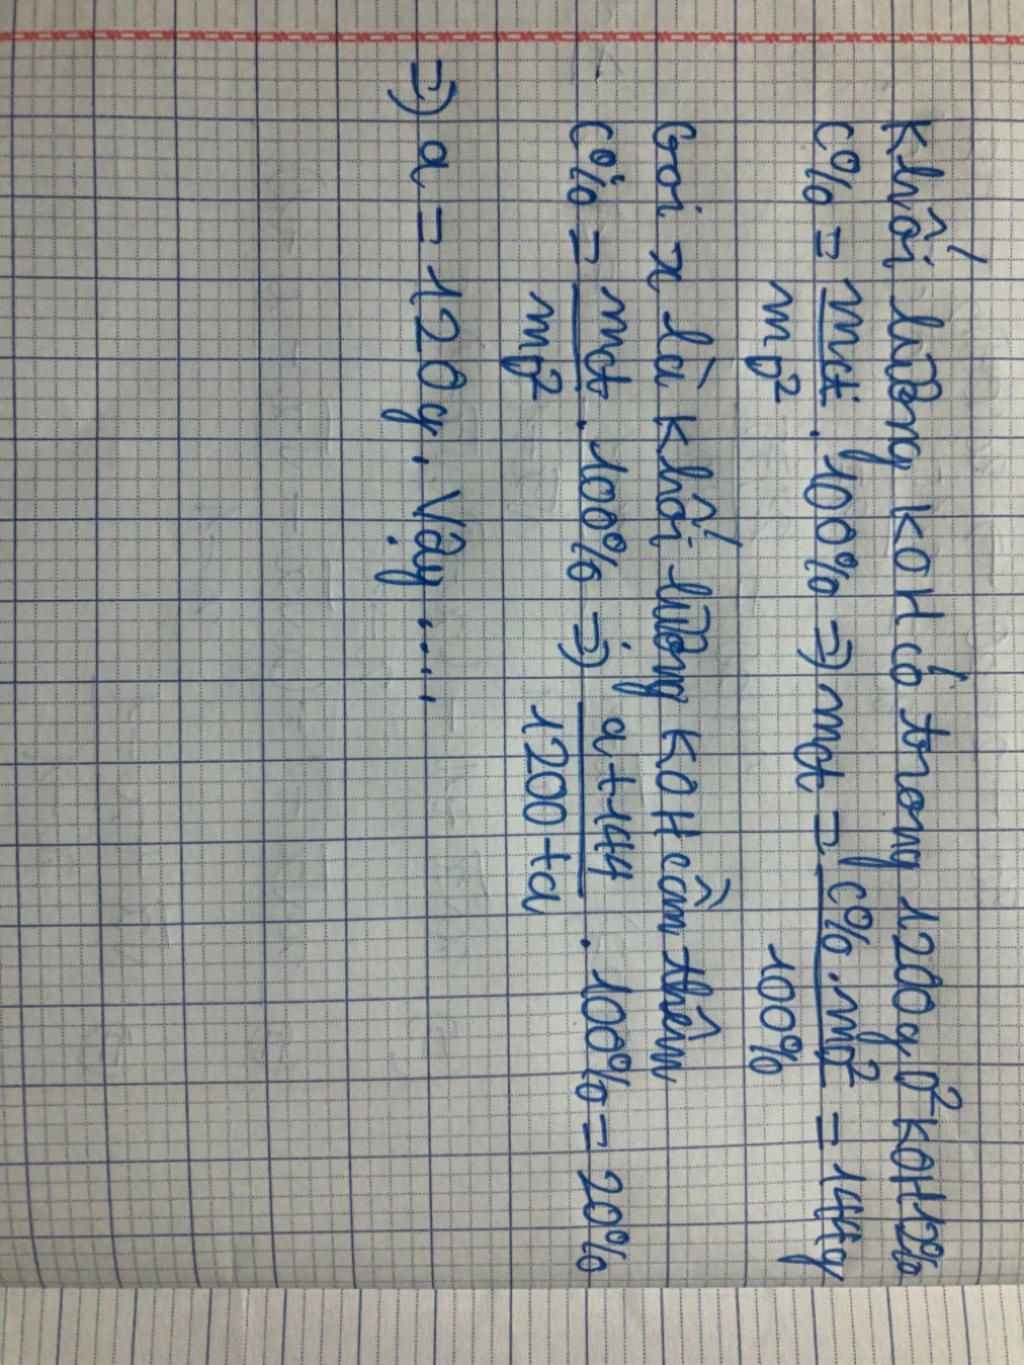 Khối lượng KOH có trong 1200g d² KOH 12%
C% = mct / md² . 100% => mct = C% . md² / 100% = 144g
Gọi x là khối lượng KOH cần thêm
C% = mct / md² . 100% => a + 144 / 1200 + a . 100% = 20%
=> a = 120g. Vậy ....